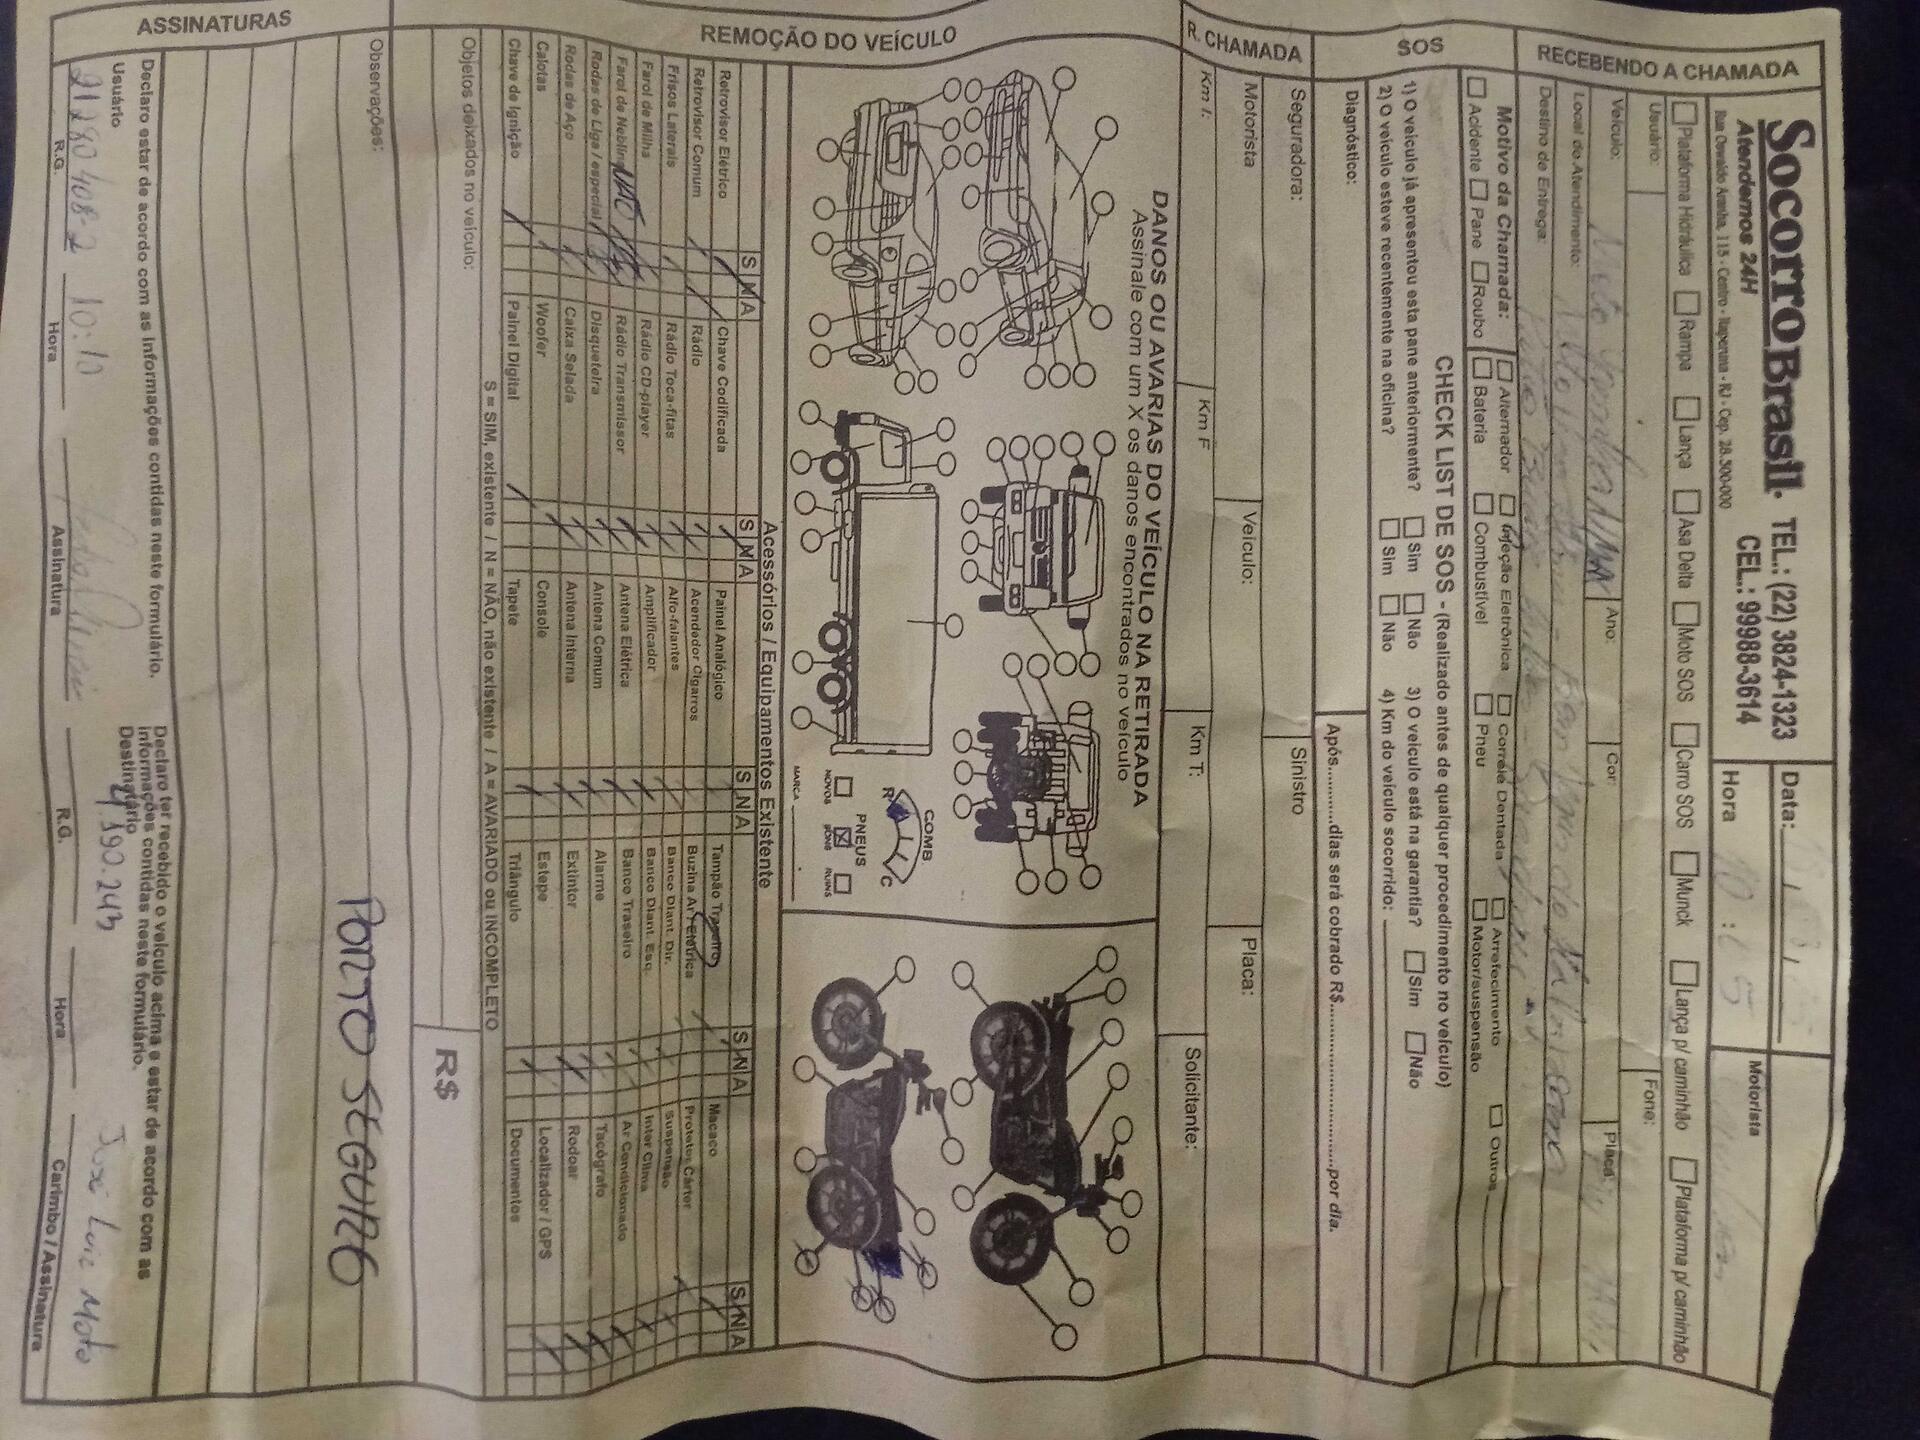 SOCORRO BRASIL. TEL.: (22) 3824-1323
Atendemos 24H CEL.: 99988-3614
Rua Oswaldo Aranha, 115 - Centro - Itaperuna - RJ - Cep. 28.500-000
Data:
Hora 10:15
Motorista
RECEBENDO A CHAMADA
Plataforma Hidráulica Rampa Lança Asa Delta Moto SOS Carro SOS Munck Lança p/ caminhão Plataforma p/ caminhão
Usuário: Fone:
Veículo: Moto Yamaha Ano: Cor: Placa:
Local do Atendimento: Bom Jesus do Itabapoana
Destino de Entrega:
Motivo da Chamada: Alternador Injeção Eletrônica Correia Dentada Arrefecimento Outros
Acidente Pane Roubo Bateria Combustível Pneu Motor/suspensão
SOS
CHECK LIST DE SOS - (Realizado antes de qualquer procedimento no veículo)
1) O veículo já apresentou esta pane anteriormente? Sim Não 3) O veículo está na garantia? Sim Não
2) O veículo esteve recentemente na oficina? Sim Não 4) Km do veículo socorrido:
Diagnóstico: Após............dias será cobrado R$..............................por dia.
R. CHAMADA
Seguradora: Sinistro
Motorista Veículo: Placa:
Km I: Km F Km T: Solicitante:
REMOÇÃO DO VEÍCULO
DANOS OU AVARIAS DO VEÍCULO NA RETIRADA
Assinale com um X os danos encontrados no veículo
COMB
R C
PNEUS
NOVOS BONS RUINS
MARCA
Acessórios / Equipamentos Existente
S N A S N A S N A S N A S N A
Retrovisor Elétrico Chave Codificada Painel Analógico Tampão Traseiro Macaco
Retrovisor Comum Rádio Acendedor Cigarros Buzina Ar / Elétrica Protetor Cárter
Frisos Laterais Rádio Toca-fitas Alto-falantes Banco Diant. Dir. Suspensão
Farol de Milha Rádio CD-player Amplificador Banco Diant. Esq. Inter Clima
Farol de Neblina Rádio Transmissor Antena Elétrica Banco Traseiro Ar Condicionado
Rodas de Liga / especial Disqueteira Antena Comum Alarme Tacógrafo
Rodas de Aço Caixa Selada Antena Interna Extintor Rodoar
Calotas Woofer Console Estepe Localizador / GPS
Chave de Ignição Painel Digital Tapete Triângulo Documentos
S = SIM, existente / N = NÃO, não existente / A = AVARIADO ou INCOMPLETO
Objetos deixados no veículo: R$
Observações: PORTO SEGURO
ASSINATURAS
Declaro estar de acordo com as informações contidas neste formulário.
Usuário
21280408-2 10:10
R.G. Hora Assinatura
Declaro ter recebido o veículo acima e estar de acordo com as
informações contidas neste formulário.
Destinatário
4.390.243 José Luiz Moto
R.G. Hora Carimbo / Assinatura